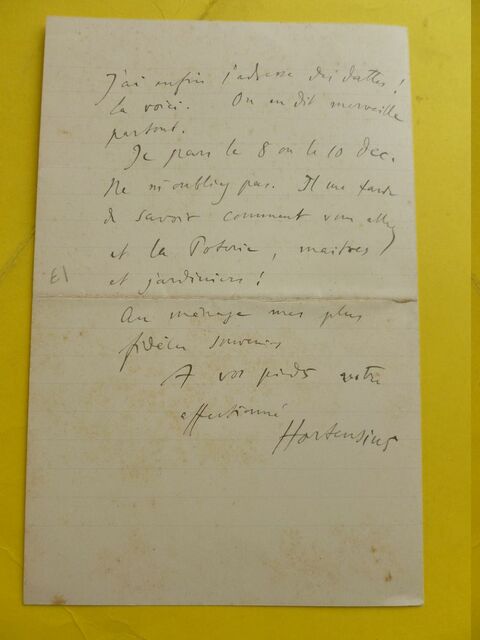 J'ai enfin l'adresse des dattes !
La voici. On en dit merveille
partout.
Je pars le 8 ou le 10 dec.
Ne m'oubliez pas. Il me tarde
de savoir comment vous allez
et la Poterie, maitres
et jardiniers !
Au ménage mes plus
fidèles souvenirs
A vos pieds votre
affectionné
Hortensius